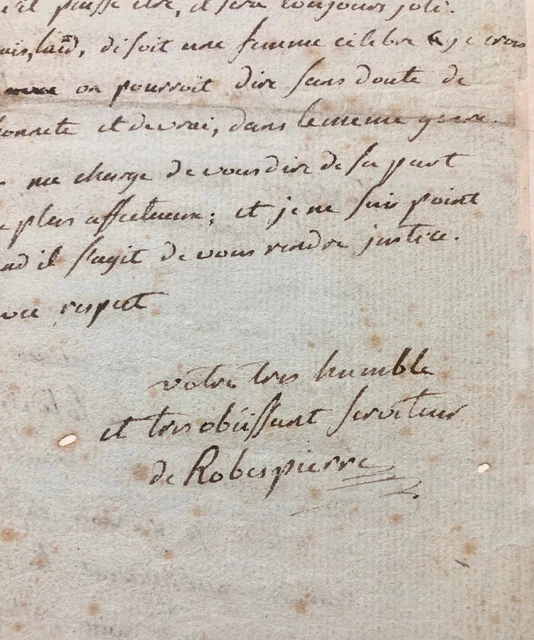 'il puisse être, il sera toujours joli.
laid, disoit une femme célèbre & je crois
on pourroit dire sans doute de
honnete et de vrai, dans le meme genre.
me charge de vous dire de sa part
plus affectueux; et je ne suis point
nd il s'agit de vous rendre justice.
respect
votre tres humble
et tres obéissant serviteur
de Robespierre